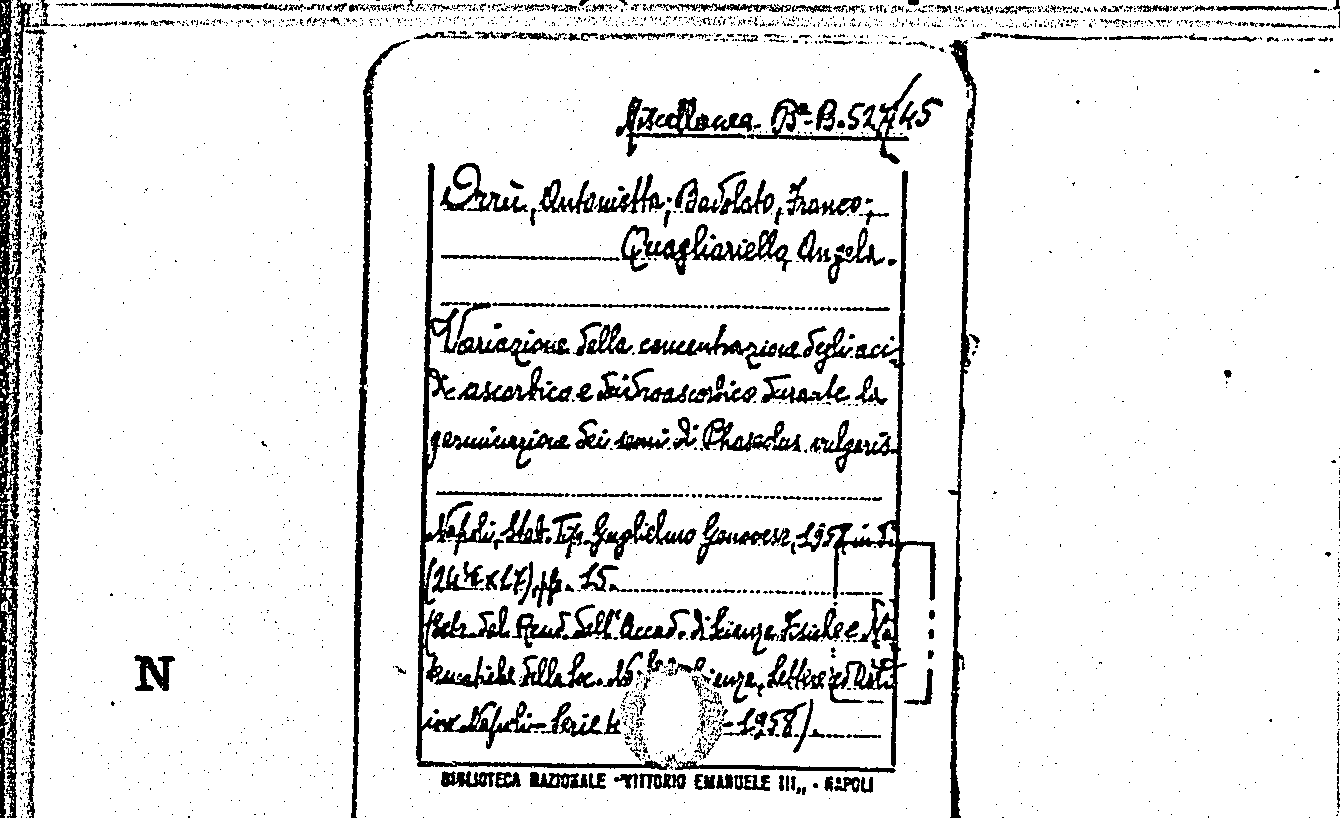 Miscellanea Bª B. 527/45
Orrù, Antonietta; Badolato, Franco;
Quagliariello, Angela.
Variazione della concentrazione degli aci
di ascorbico e deidroascorbico durante la
germinazione dei semi di Phaseolus vulgaris
Napoli, Stab. Tip. Guglielmo Genovese, 1958 in
pp. 15.
(Estr. dal Rend. dell'Accad. di Scienze Fisiche e Ma
tematiche della Soc. Scienze, Lettere ed Arti
in Napoli - Serie 1958).
N
BIBLIOTECA NAZIONALE "VITTORIO EMANUELE III„ - NAPOLI